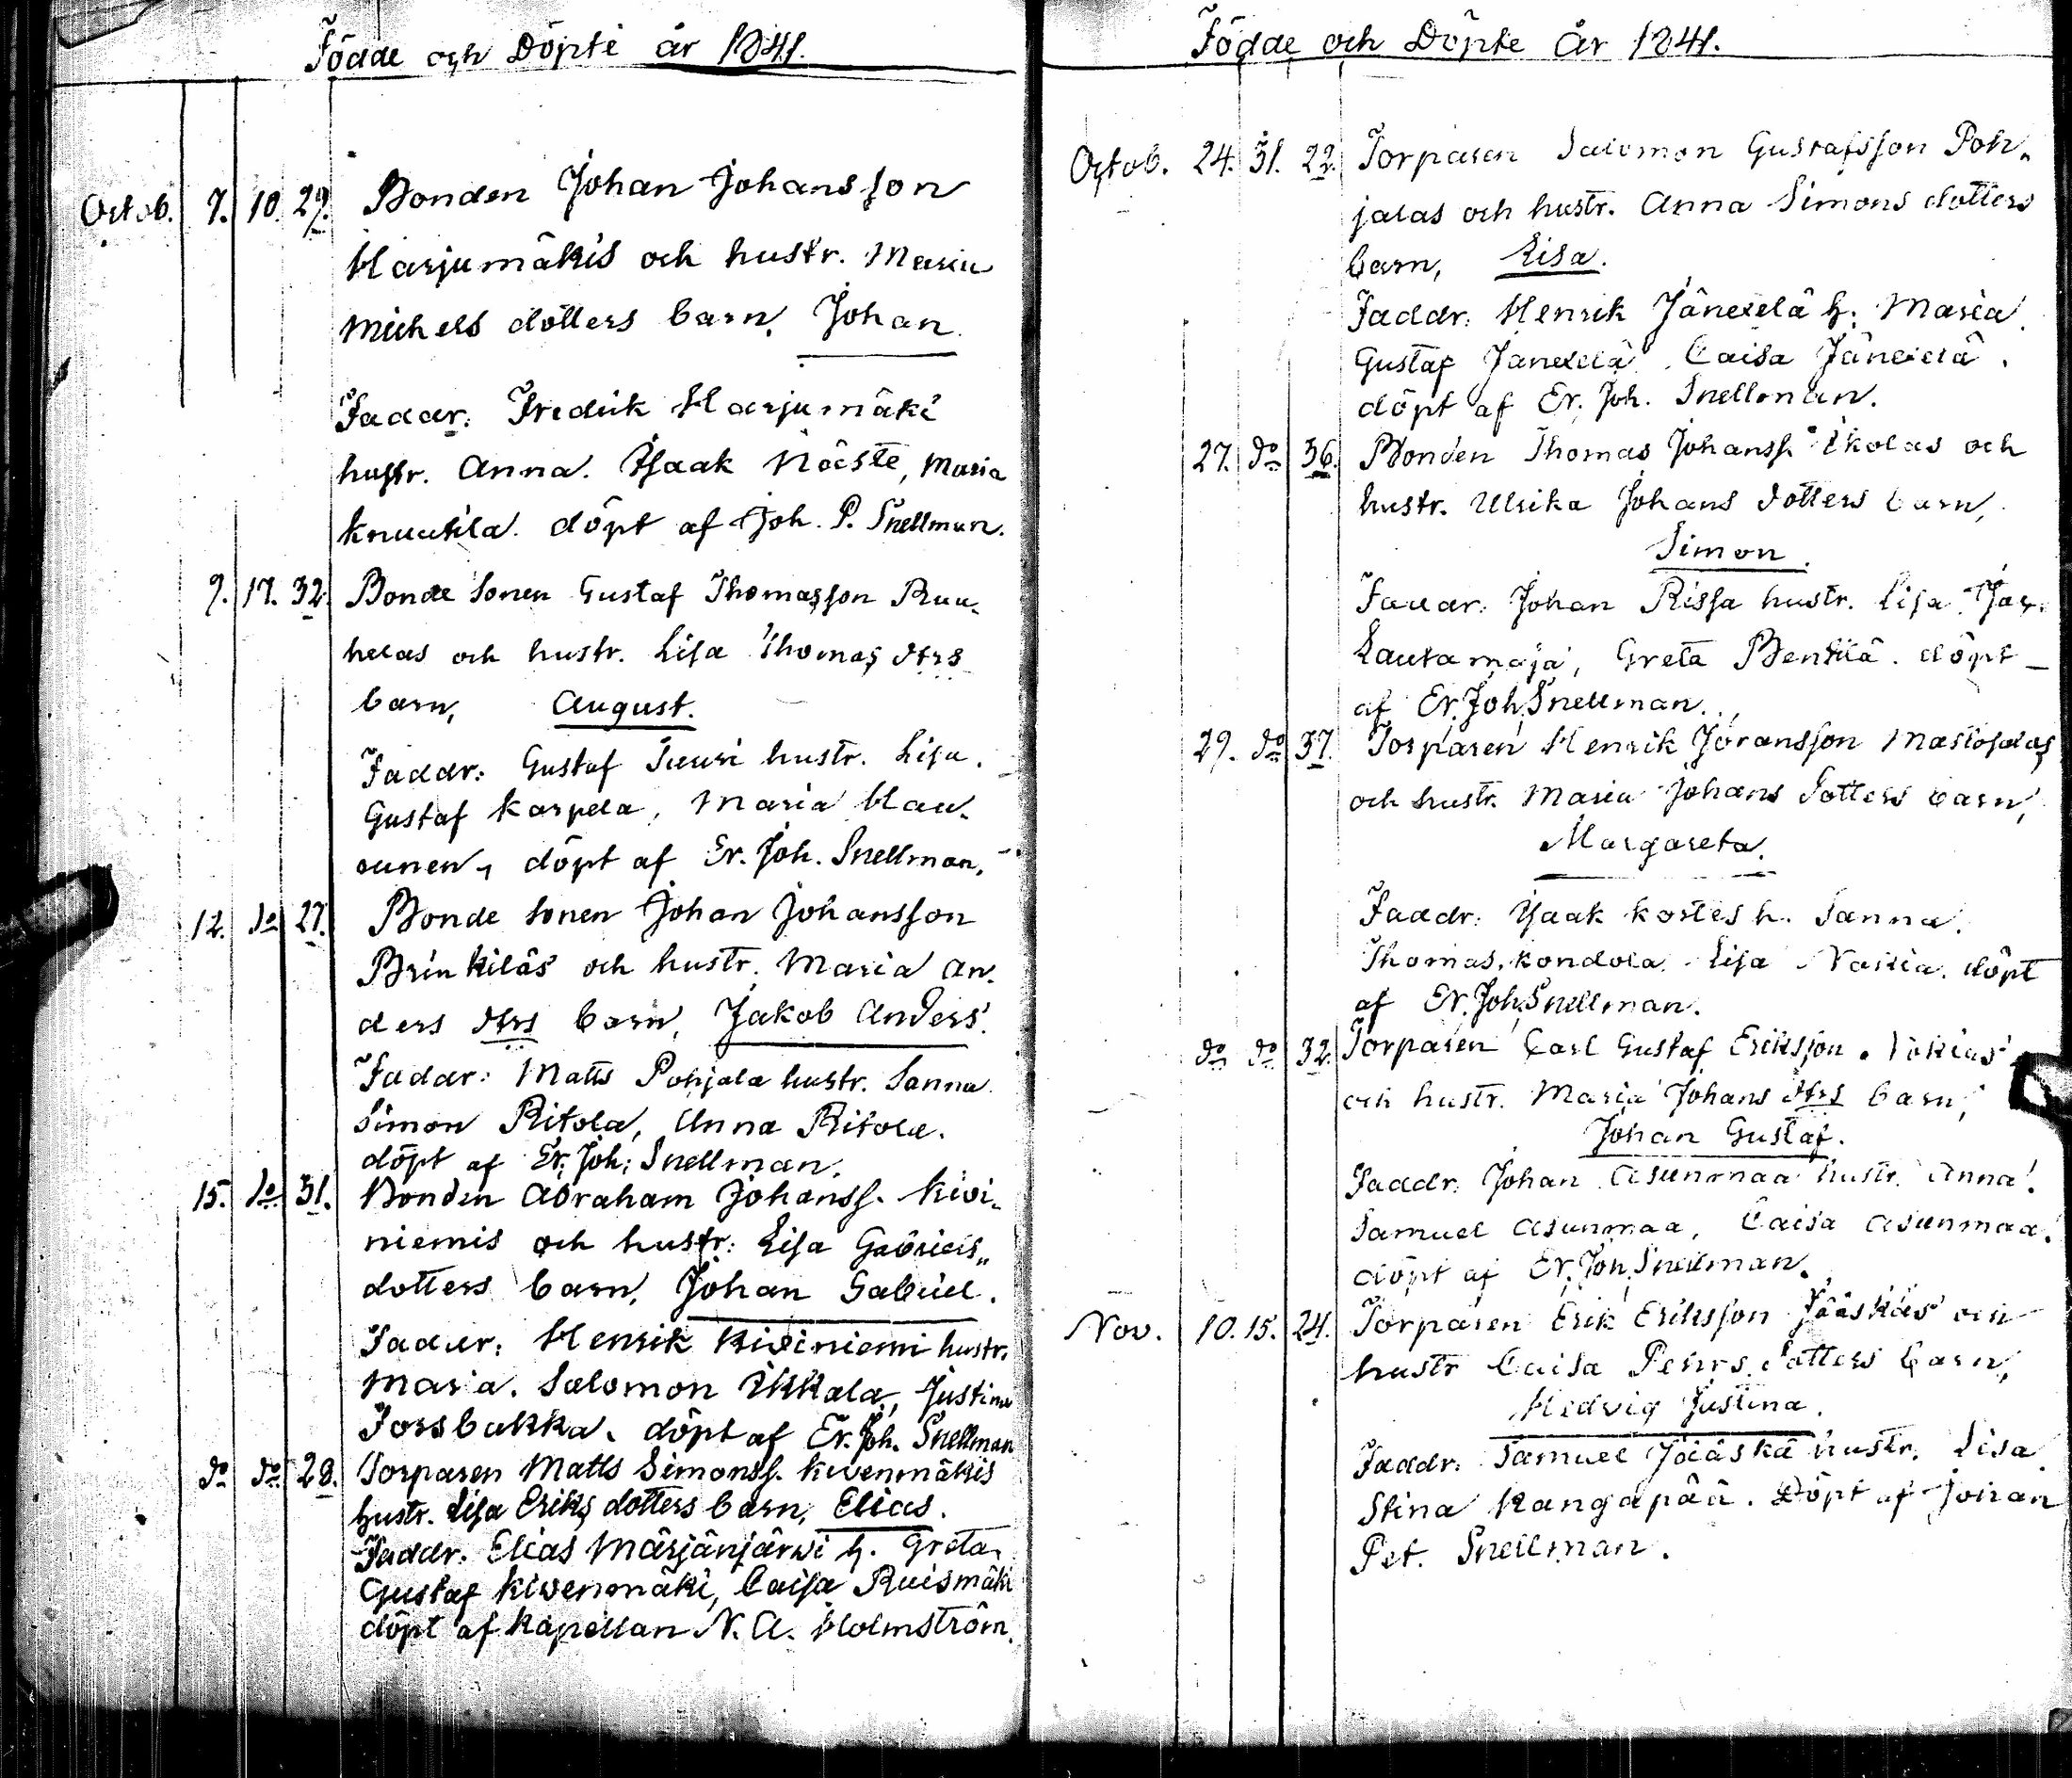 Födde och Döpte år 1841.
Octob. 7. 10. 29. Bonden Johan Johansson
Harjumäkis och hustr. Maria
Michels dotters barn, Johan
Faddr: Fredrik Harjumäki
hustr. Anna. Isaak Näste, Maria
Knuutila. döpt af Joh. P. Snellman.
9. 17. 32. Bonde Sonen Gustaf Thomasson Ruu-
helas och hustr. Lisa Thomas dtrs
barn, August.
Faddr: Gustaf Juuri hustr. Lisa.
Gustaf Karpela, Maria Hau-
unen, döpt af Er. Joh. Snellman.
12. do 27. Bonde Sonen Johan Johansson
Brinkiläs och hustr. Maria An-
ders dtrs barn, Jakob Anders.
Faddr: Matts Pohjala hustr. Sanna
Simon Ritola, Anna Ritola.
döpt af Er. Joh: Snellman.
15. do 31. Bonden Abraham Johanss. Kivi-
niemis och hustr: Lisa Gabriels-
dotters barn, Johan Gabriel.
Faddr: Henrik Kiviniemi hustr.
Maria. Salomon Ikkala, Justina
Forsbakka. döpt af Er. Joh. Snellman
do do 28. Torparen Matts Simonss. Kivenmäkis
hustr. Lisa Eriks dotters barn, Elias.
Faddr. Elias Märjänjärvi h. Greta
Gustaf Kivenmäki, Caisa Ruismäki
döpt af Kapellan N. A. Holmström.
Födde och Döpte År 1841.
Octob. 24. 31. 22. Torparen Salomon Gustafsson Poh-
jalas och hustr. Anna Simons dotters
barn, Lisa.
Faddr: Henrik Jänexelä h: Maria
Gustaf Janexelä Caisa Jänexelä.
döpt af Er. Joh. Snellman.
27. do 36. Bonden Thomas Johanss. Ikolas och
hustr. Ulrika Johans dotters barn,
Simon.
Faddr: Johan Rissa hustr. Lisa.
Lautamaja, Greta Benttilä. döpt
af Er. Joh. Snellman.
29. do 37. Torparen Henrik Göransson
och hustr. Maria Johans dotters barn,
Margareta.
Faddr: Isaak Kostes h. Sanna.
Thomas Kondola. Lisa döpt
af Er. Joh. Snellman.
do do 32. Torparen Carl Gustaf Eriksson
och hustr. Maria Johans dtrs barn,
Johan Gustaf.
Faddr: Johan Asunmaa hustr. Anna.
Samuel Asunmaa, Caisa Asunmaa.
döpt af Er. Joh. Snellman.
Nov. 10. 15. 24. Torparen Erik Eriksson Jääskäs och
hustr Caisa Pehrs dotters barn,
Hedvig Justina.
Faddr: Samuel Jääskä hustr. Lisa
Stina Kangapää. Döpt af Johan
Pet. Snellman.